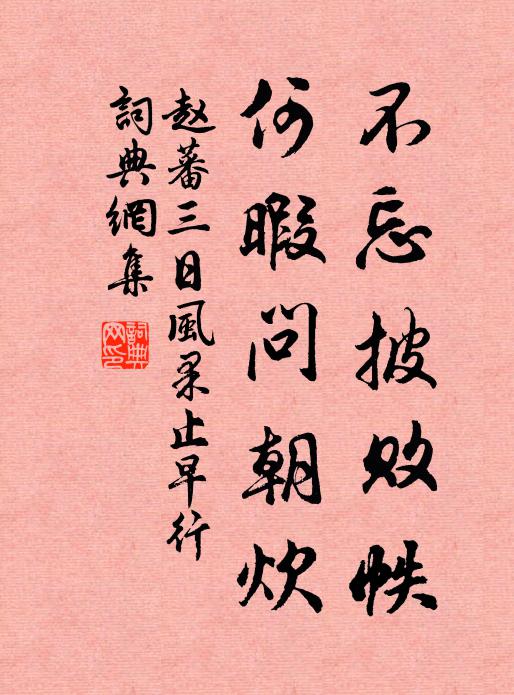 不忘披败帙
何暇問朝炊
赵蕃三日風果止早行
詞典網集
詞典
网印